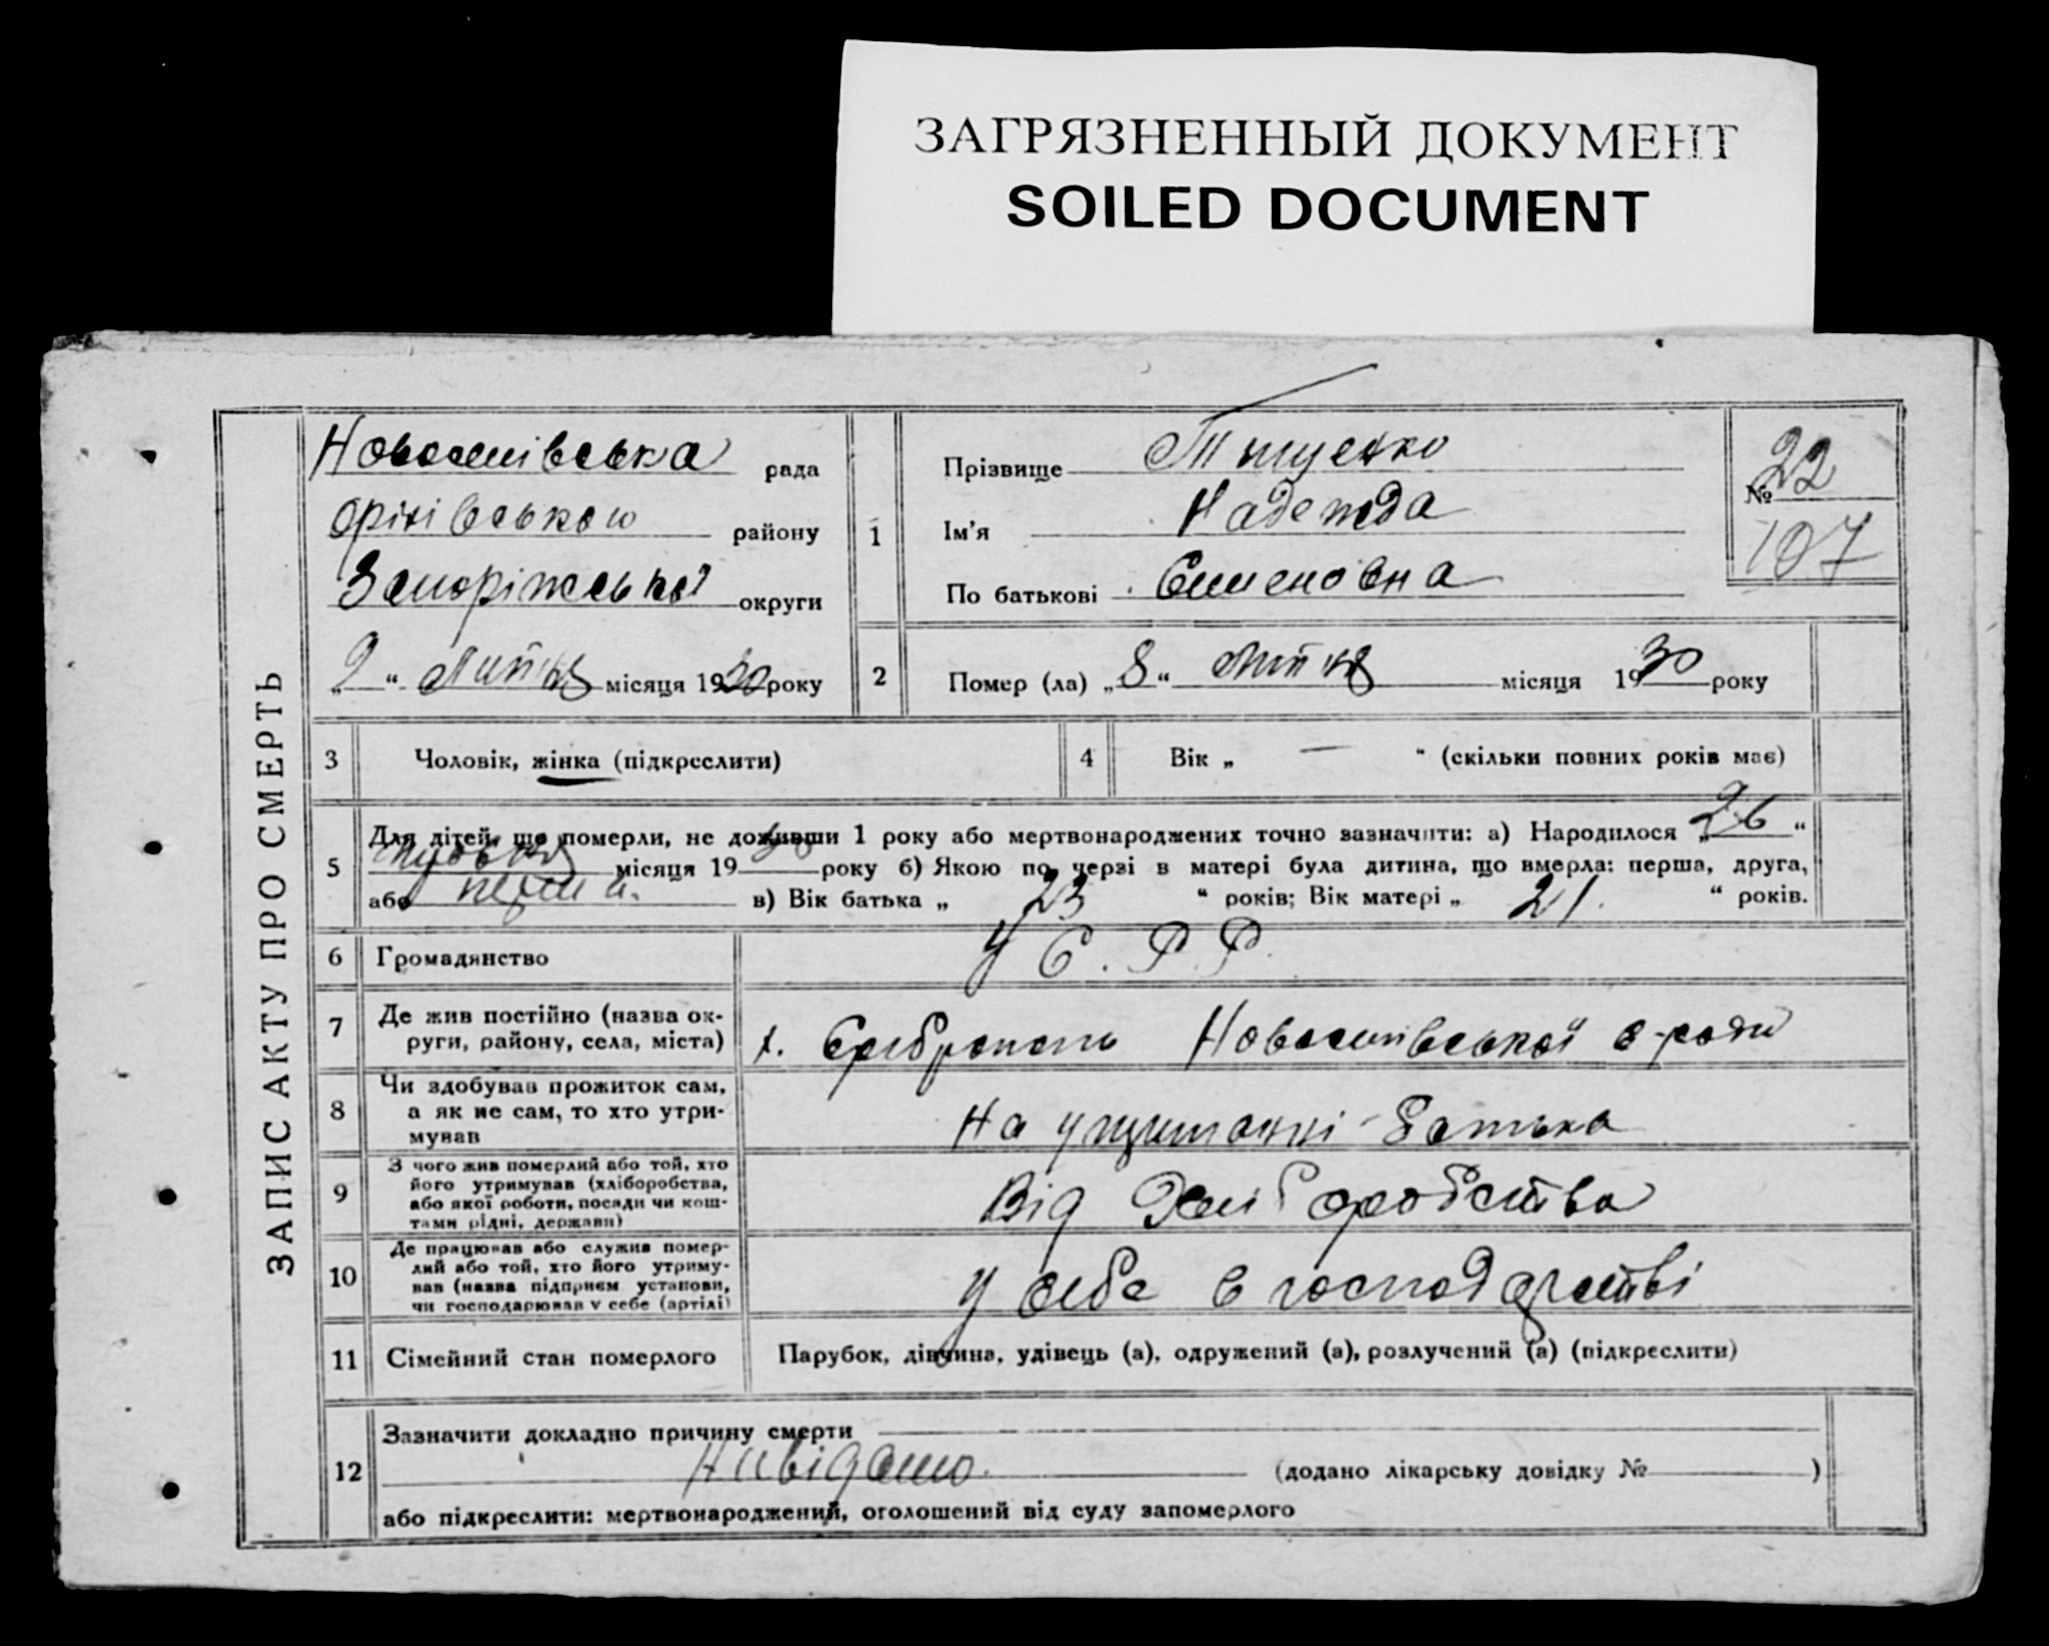 ЗАГРЯЗНЕННЫЙ ДОКУМЕНТ
SOILED DOCUMENT
ЗАПИС АКТУ ПРО СМЕРТЬ
рада
району
Запоріжської округи
„9“ Липня місяця 1930 року
1
Прізвище Тищенко
Ім'я Надежда
По батькові Семеновна
№ 22
107
2
Помер (ла) „8“ Липня місяця 1930 року
3
Чоловік, жінка (підкреслити)
4
Вік „ — “ (скільки повних років має)
5
Для дітей, що померли, не доживши 1 року або мертвонароджених точно зазначити: а) Народилося „26“
місяця 1930 року б) Якою по черзі в матері була дитина, що вмерла: перша, друга,
або перша. в) Вік батька „ 23 “ років; Вік матері „ 21. “ років.
6
Громадянство
У С. Р. Р.
7
Де жив постійно (назва ок-
руги, району, села, міста)
х. с-ради
8
Чи здобував прожиток сам,
а як не сам, то хто утри-
мував
На батька
9
З чого жив померлий або той, хто
його утримував (хліборобства,
або якої роботи, посади чи кош-
тами рідні, держави)
Від Хліборобства
10
Де працював або служив помер-
лий або той, хто його утриму-
вав (назва підприєм установи,
чи господарював у себе (артілі)
У себе в господарстві
11
Сімейний стан померлого
Парубок, дівчина, удівець (а), одружений (а), розлучений (а) (підкреслити)
12
Зазначити докладно причину смерти
Нивідомо. (додано лікарську довідку № )
або підкреслити: мертвонароджений, оголошений від суду запомерлого